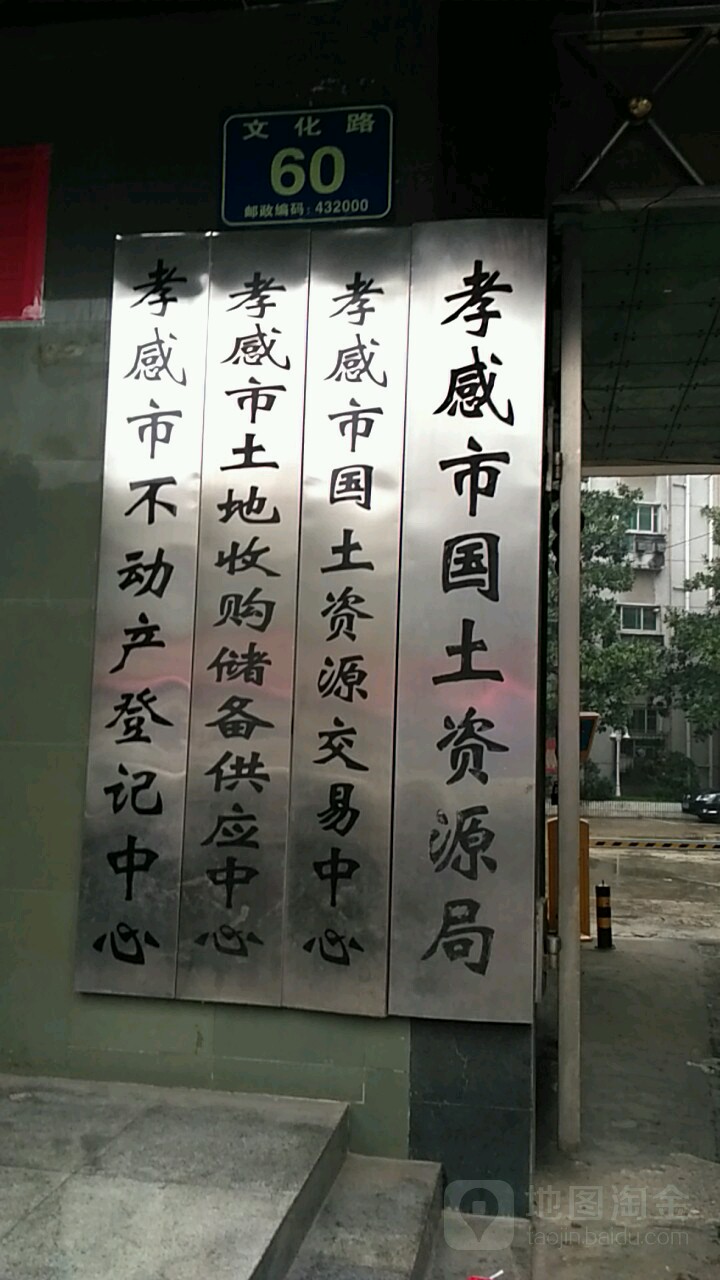 文化路
60
邮政编码:432000
孝感市国土资源局
孝感市国土资源交易中心
孝感市土地收购储备供应中心
孝感市不动产登记中心
地图淘金
taojin.baidu.com